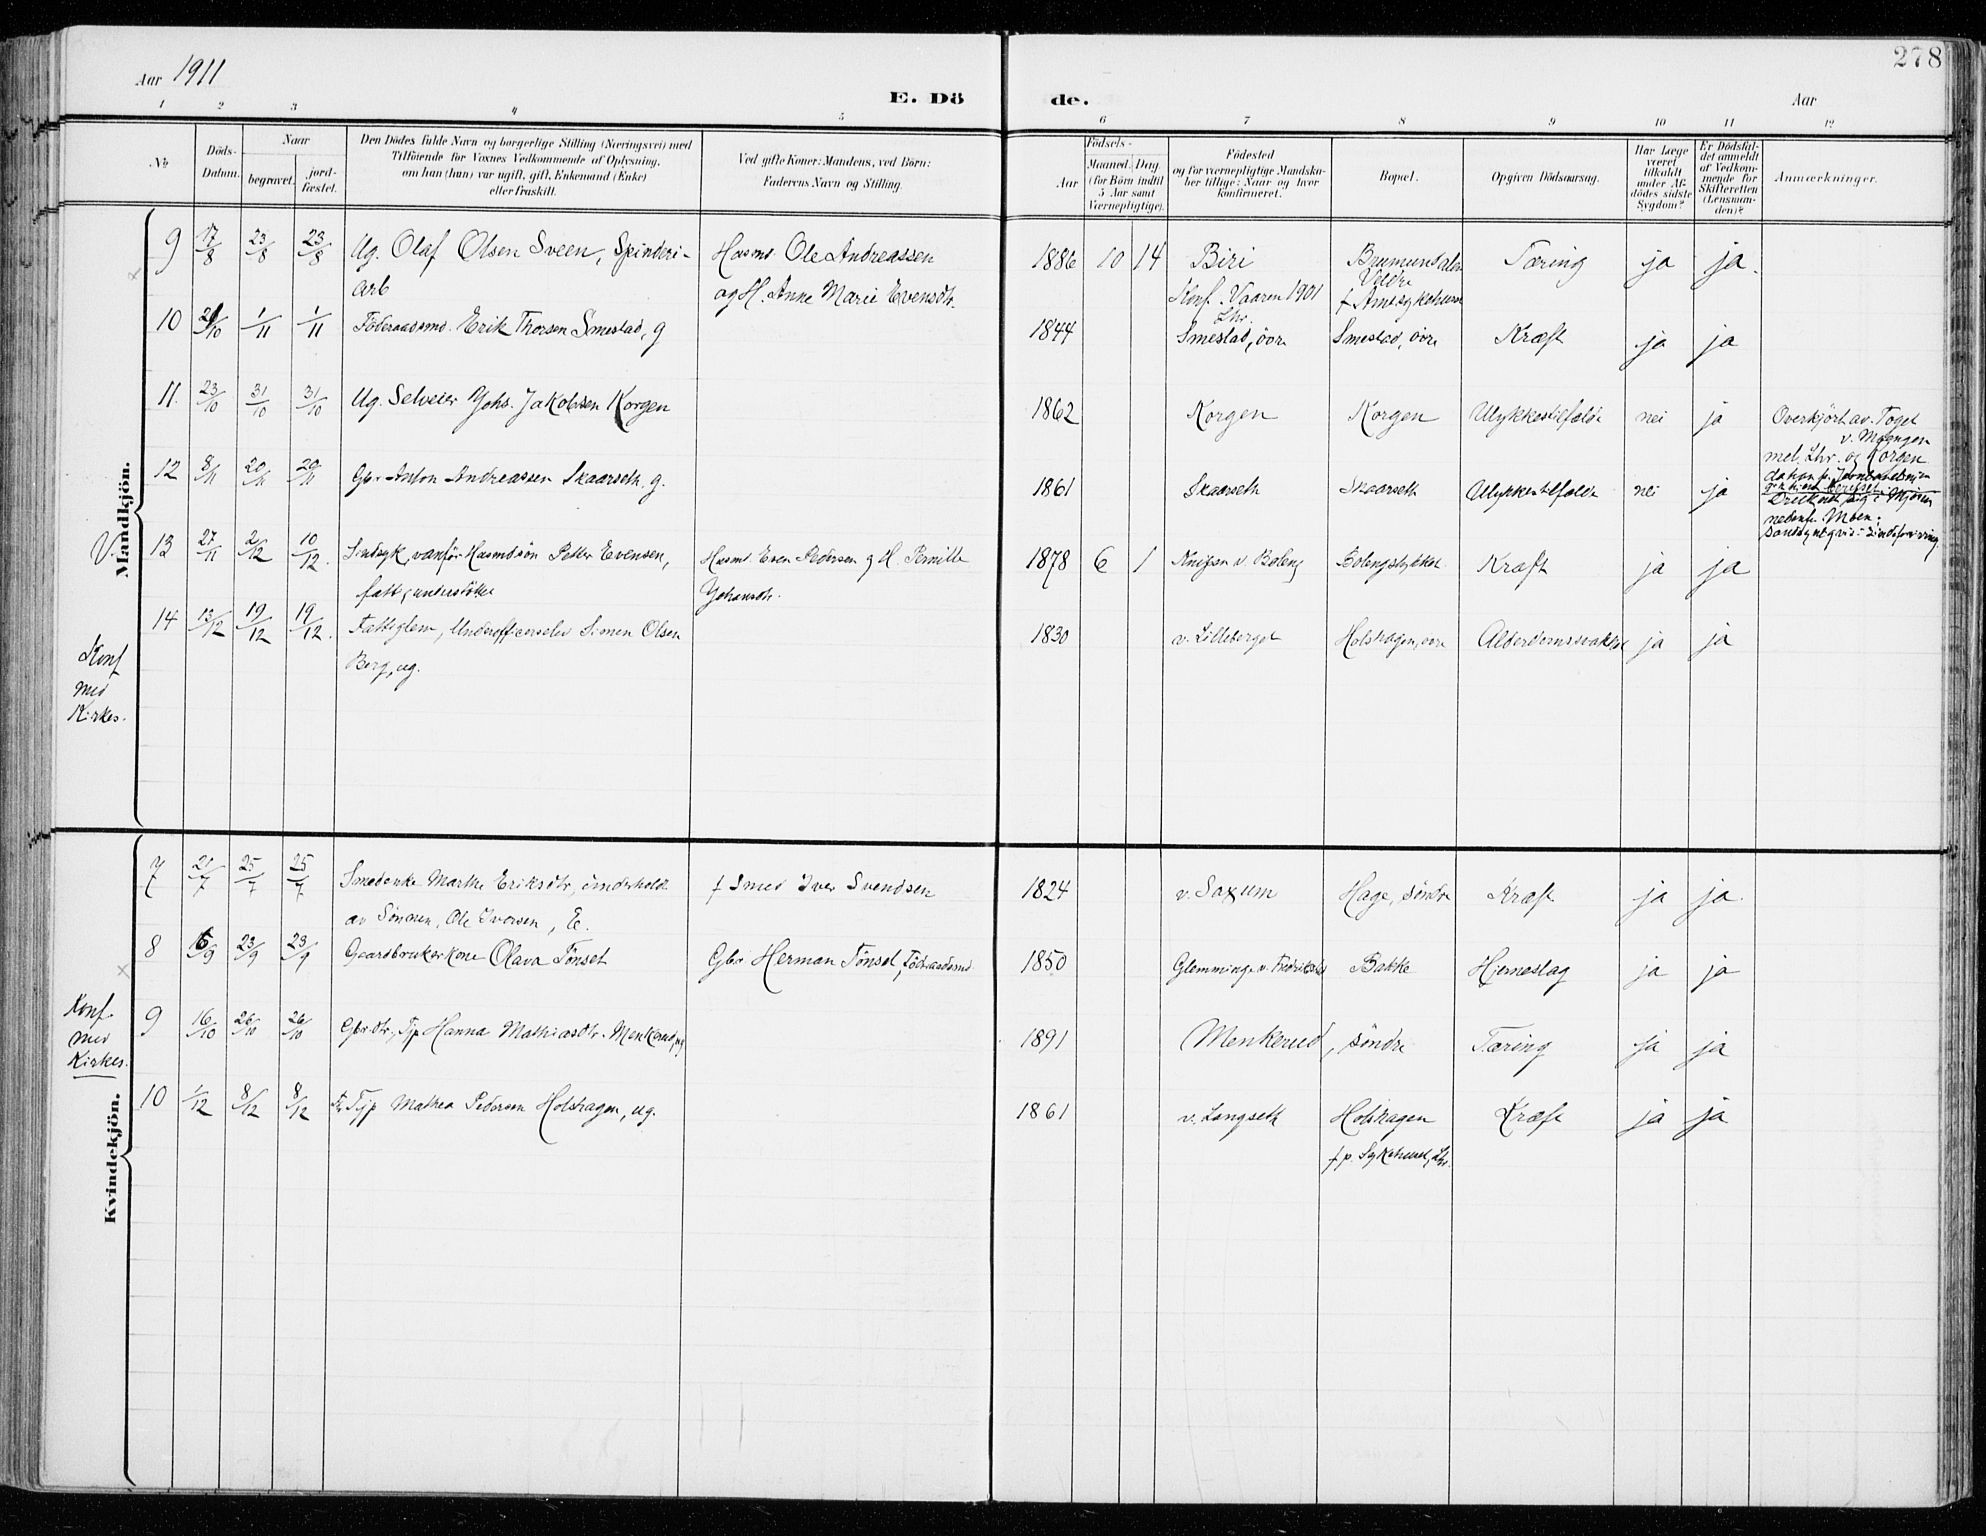 278
Aar 1911
E. Dö de.
Aar
1 2 3 4 5 6 7 8 9 10 11 12
No
Döds-Datum.
Naar
begravet.
jord-fæstet.
Den Dödes fulde Navn og borgerlige Stilling (Næringsvei) med
Tilföiende for Voxnes Vedkommende af Oplysning,
om han (hun) var ugift, gift, Enkemand (Enke)
eller fraskilt.
Ved gifte Koner: Mandens, ved Börn:
Faderens Navn og Stilling.
Födsels-
Aar
Maaned. Dag
(for Börn indtil
5 Aar samt
Værnepligtige).
Födested
og for værnepligtige Mandska-
ber tillige: Naar og hvor
konfirmeret.
Bopæl.
Opgiven Dödsaarsag.
Har Læge
været
tilkaldt
under Af-
dödes sidste
Sygdom?
Er Dödsfal-
det anmeldt
af Vedkom-
mende for
Skifteretten
(Lensman-
den)?
Anmærkninger.
Mandkjön.
9 17/8 23/8 23/8 Ug. Olaf Olsen Sveen, Spinderi- Husmd Ole Andreassen 1886 10 14 Biri Brumundalen Tæring ja ja.
arb og H. Anne Marie Evensdtr. Konf. Vaaren 1901 Veldre
Lhr. f Amtssykehuse
10 /10 1/11 1/11 Föderaadsmd. Erik Thorsen Smestad, g 1844 Smestad, övre Smestad, övre Kræft ja ja
11. 23/10 31/10 31/10 Ug. Selveier Johs. Jakobsen Korgen 1862 Korgen Korgen Ulykkestilfælde nei ja Overkjört av Toget
mel. Lhr. og Korgen
12 8/11 20/11 20/11 Gbr Anton Andreassen Skaarseth. g. 1861 Skaarseth Skaarseth Ulykkestilfælde nei ja
Druknet sig i Mjösen
nedenfr Moen;
sandsynlgvis i Sindsforvirring.
V. 13 27/11 2/12 10/12. Sindsyk, vanför Husmdsön Petter Evensen, Husmd. Even Pedersen og H. Pernille 1878 6 1 Knipen v. Boleng Bolengstykket Kræft ja ja
fatt, understöttet Johansdr.
14 13/12 19/12 19/12. Fattiglem, Underofficerselev Simen Olsen 1830 v. Lilleberget Holshagen, övre Alderdomssvakhet ja ja
Berg, ug.
Konf
med
Kirkes.
Kvindekjön.
7 21/7 25/7 25/7 Smedenke Marthe Eriksdtr, underholdt f Smed Iver Svendsen 1824 v. Saxum Hage, söndre Kræft ja ja.
av Sönnen, Ole Iversen, E.
8 /9 23/9 23/9 Gaardbrukerkone Olava Tönset Gbr Herman Tönset, Föderaadsmd 1850 Glemminge v. Fredrikstad Bakke Hjerneslag ja ja
Konf.
med
Kirkes.
9 16/10 26/10 26/10 Gbr.dtr., Hanna Mathiasdtr. Menkerud, ug 1891 Menkerud, söndre Tæring ja ja
10 1/12 8/12 8/12 Mathea Pedersen Holshagen, ug. 1861 v. Langseth Holshagen Kræft ja ja
f p. Sykehuset, Lhr.